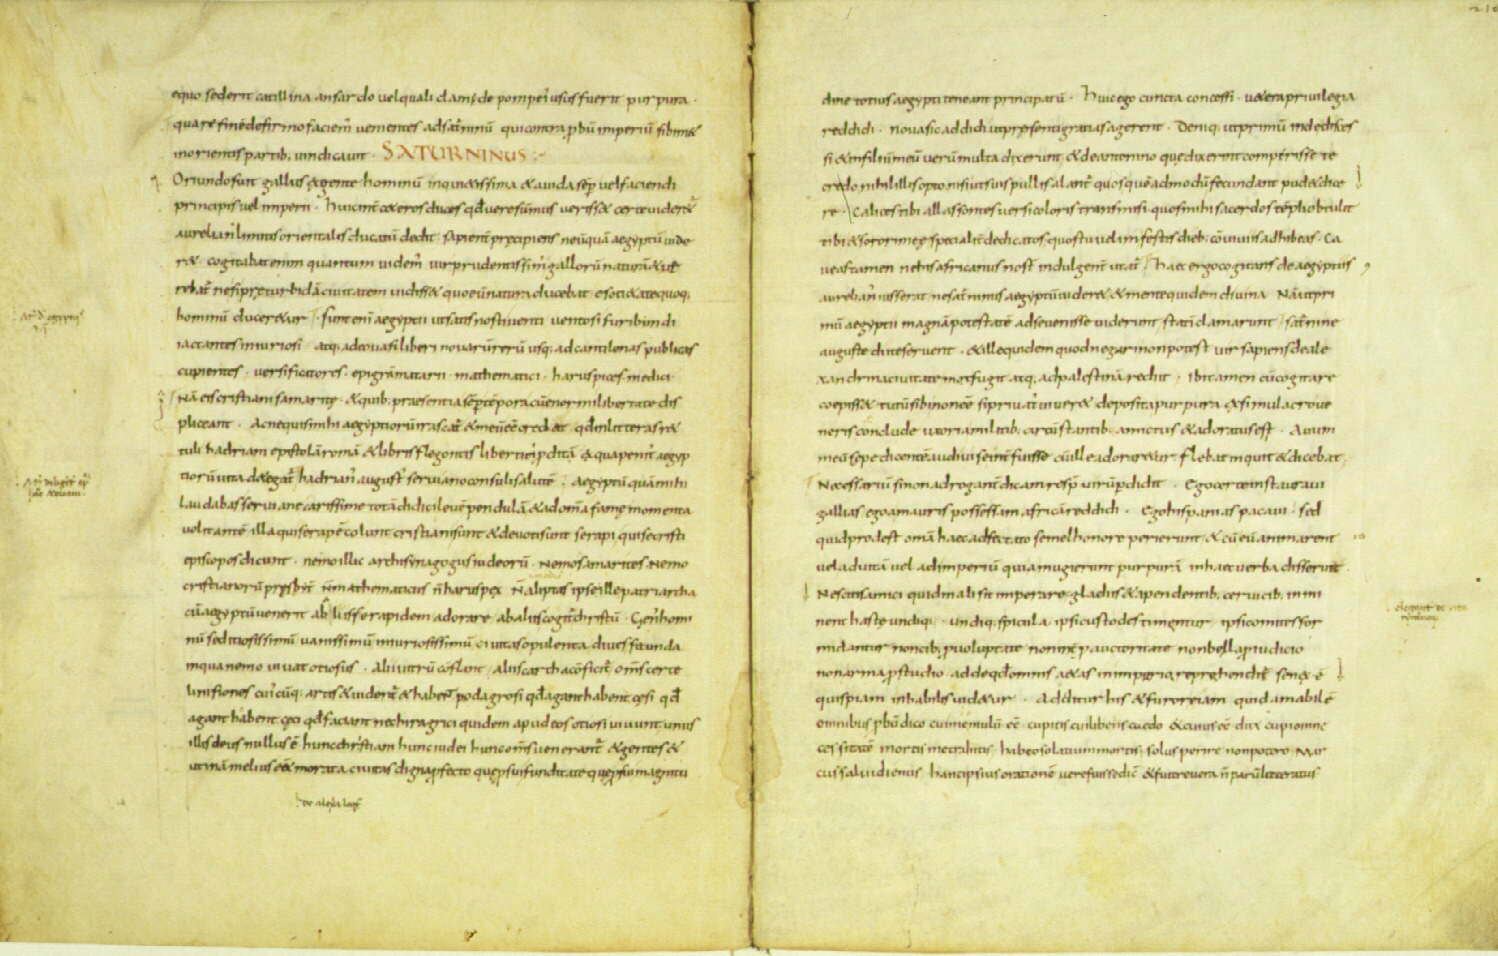 equo sederit catillina an sardo vel quali clamide pompei' usus fuerit purpura ·
quare finē de firmo faciem' venientes ad sat'ninū qui contra pbū imperiū sibi in&
in orientis partib; vindicavit · SATURNINUS :~
Oriundo fuit gallus & gente hominū inqui&issima & avida sēp vel faciendi
principis vel imperii · huic int' c&eros duces qđ vere sūmus vir ess& certe vider&'
aurelian' limitis orientalis ducatū dedit · sapient' precipiens ne ūquā aegyptū vide
r& · cogitabat enim quantum videm' vir prudentissim' gallorū naturā & ve
rebat' ne si pturbidā civitatem vidiss& quo eū natura ducebat eo soci&ate quoq;
hominū ducer&ur / Sunt eni aegyptii ut satis nosti venti ventosi furibundi
iactantes iniuriosi · atq; adeo vasi liberi novarū rerū usq; ad cantilenas publicas
cupientes · versificatores · epigrāmatarii · mathematici · haruspices medici ·
Nā eis cristiani samarite · & quib; praesentia sēp tēpora cū enormi libertate dis
pliceant · Ac ne quis mihi aegyptiorū irascat' & meū eē credat qđ in litteras r&
tuli hadriani epistolā romā & libris flegontis liberti ei' pditā & qua penit' aegyp
tiorū vita d&egat' hadrian' august' serviano consuli salutē · aegyptū quā mihi
laudabas serviane carissime totā didici levē pendulā & ad omīa fame momenta
volitantē illa qui serapē colunt cristiani sunt & devoti sunt serapi qui se cristi
episcopos dicunt · nemo illic archisynagogus iudeorū · nemo samarites · nemo
cristianorū presbyt' n̄ mathematicus n̄ haruspex n̄ aliptas ipse ille patriarcha
cū aegyptū venerit ab aliis serapidem adorare · ab aliis cogit' christū · Gen' homi
nū seditiosissimū vanissimū iniuriosissimū civitas opulenta dives fecunda
in qua nemo vivat otiosus · alii vitrū cōflant / aliis carthacōficit' omīs certe
linifiones cui'cūq; artis & vident' & habent' podagrosi qđ agant habent çesi qđ
agant habent çeci qđ faciant nec hiragrici quidem apud eos otiosi vivunt unus
illis deus nullus ē hunc christiani hunc iudei hunc omīs venerant' & gentes &
utinā melius eēt morata civitas digna pfecto que psui funditate que psui magnitu
de alexā laus
dine totius aegypti teneant principatū · huic ego cuncta concessi · vetera privilegia
reddidi · nova sic addidi ut presenti gratias agerent · deniq; ut primū inde disces
si & in filiū meū verū multa dixerunt & de antonino que dixerint comperisse te
credo nihil illis opto nisi ut suis pullis alant' quos quē admodū fecundant pud& dice
re · Calices tibi allassontes versicoloris transmisi · quos mihi sacerdos tēpli obtulit
tibi & sorori mee specialit' dedicatos quos tu velim festis dieb; cōviviis adhibeas · Ca
veas tamen ne his africanus nost' indulgent' utat' / haec ergo cogitans de aegyptiis
aurelian' iusserat ne sat'ninus aegyptū vider& & mente quidem divina · Nā ut pri
mū aegyptii magnā potestatē ad se venisse viderunt stati clamarunt / sat'nine
auguste di te servent · & ille quidem quod negari non potest vir sapiens de ale
xandrina civitate mox fugit atq; ad palestinā rediit · ibi tamen cū cogitare
coepiss& tutū sibi non eē si privat' viver& deposita purpura & simulacro ve
neris conclude uxoria militib; circūstantib; amictus & adoratus est · Avum
meū sepe dicentē audivi se int'fuisse cū ille adorar&ur flebat inquit & dicebat ·
Necessariū si non adrogant' dicam resp' virū pdidit · Ego certe instauravi
gallias ego a mauris possessam africā reddidi · Ego hispanias pacavi · sed
quid prodest omīa haec adfectato semel honore perierunt & cū eū animarent
vel ad vitā vel ad imperiū quia inugierunt purpurā in haec verba disseruit ·
Nescitis amici quid mali sit imperare gladii & a pendentib; cervicib; inmi
nent haste undiq; · undiq; spicula ipsi custodes timentur ipsi comites for
midantur · non cib; p voluptate non it' p auctoritate non bella p iudicio
non arma p studio · adde qđ omnis aetas in imperio reprehendit' senex ē
quispiam inhabilis vid&ur · Additur his & furor etiam quid amabilē
omnibus pbū dico cui me emulū eē · cupitis cui libens caedo & cuius eē dux cupio in ne
cessitatē mortis me trahitis · habeo solatium mortis / solus perire non potero · Mar
cus salvidienus hanc ipsius orationē vere fuisse dic' & fuit revera n̄ parū litteratus